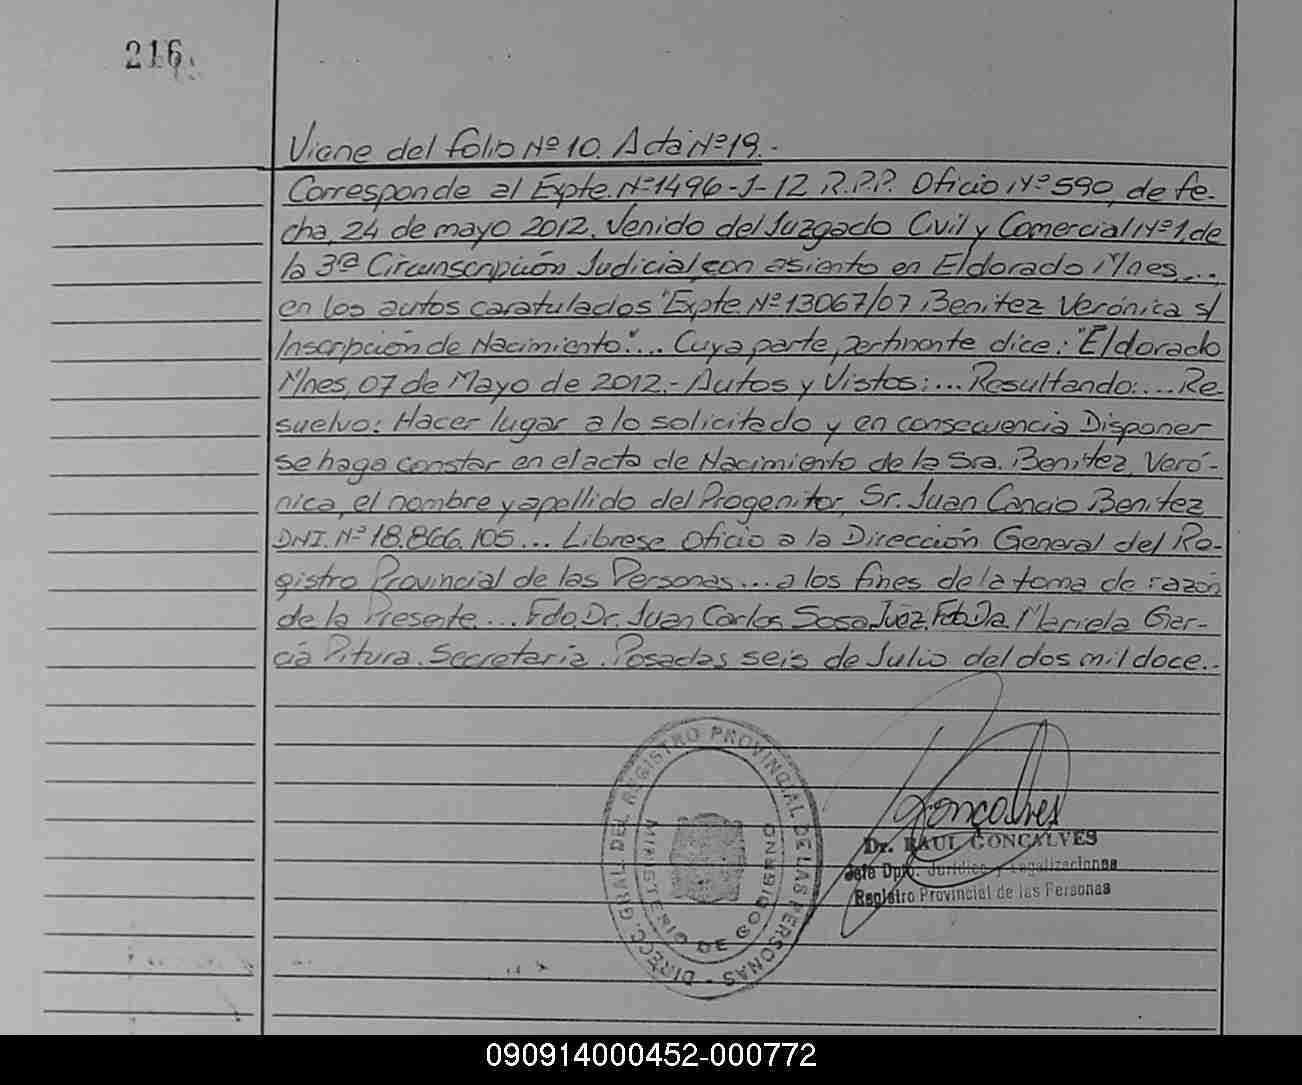 216
Viene del folio Nº 10. Acta Nº 19.-
Corresponde al Expte. Nº 1496-J-12 R.P.P. Oficio Nº 590, de fe-
cha, 24 de mayo 2012. Venido del Juzgado Civil y Comercial Nº 1, de
la 3ª Circunscripción Judicial, con asiento en Eldorado Mnes,...
en los autos caratulados "Expte Nº 13067/07 Benitez Verónica s/
Inscripción de Nacimiento"... Cuya parte, pertinente dice: "Eldorado
Mnes, 07 de Mayo de 2012.- Autos y Vistos:... Resultando:... Re-
suelvo: Hacer lugar a lo solicitado y en consecuencia Disponer
se haga constar en el acta de Nacimiento de la Sra. Benitez, Veró-
nica, el nombre y apellido del Progenitor, Sr. Juan Cancio Benitez
DNI. Nº 18.866.105... Librese Oficio a la Dirección General del Re-
gistro Provincial de las Personas... a los fines de la toma de razón
de la Presente... Fdo. Dr. Juan Carlos Sosa, Juez. Fdo. Dra Mariela Gar-
cía Pitura. Secretaria. Posadas seis de Julio del dos mil doce..-
DIRECC. GRAL. DEL REGISTRO PROVINCIAL DE LAS PERSONAS -
MINISTERIO DE GOBIERNO
Goncalves
Dr. RAUL GONCALVES
Jefe Dpto. Jurídico y Legalizaciones
Registro Provincial de las Personas
090914000452-000772